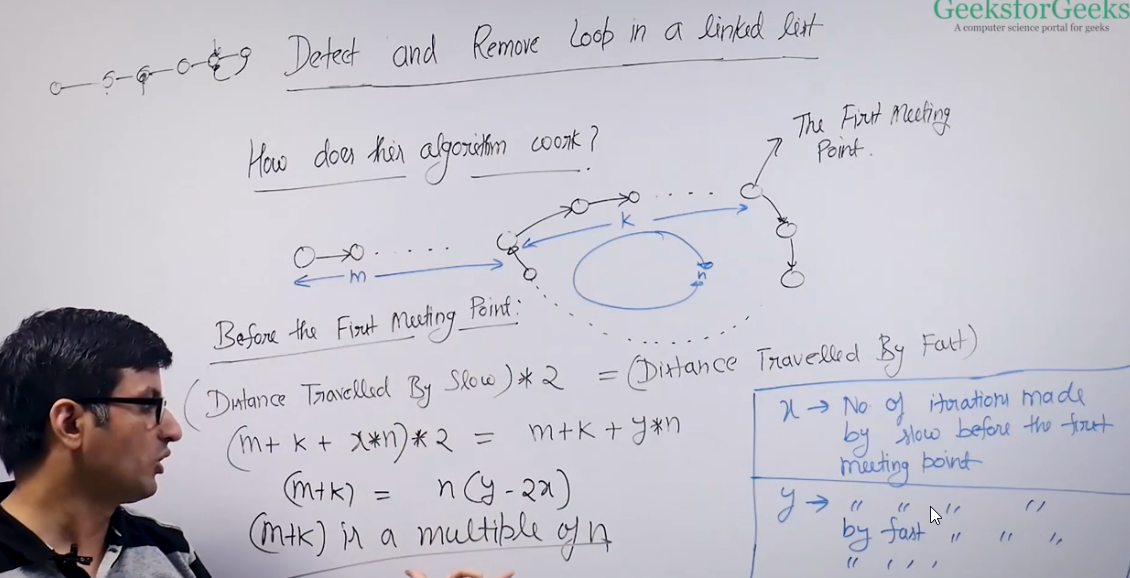 GeeksforGeeks
A computer science portal for geeks
Detect and Remove Loop in a linked list
How does this algorithm work?
The First Meeting
Point.
k
m
n
Before the First Meeting Point:
(Distance Travelled By Slow) * 2 = (Distance Travelled By Fast)
(m+k + x*n)*2 = m+k + y*n
(m+k) = n(y-2x)
(m+k) is a multiple of n
x → No of iterations made
by slow before the first
meeting point
y → " " " "
by fast " " "
" " " "